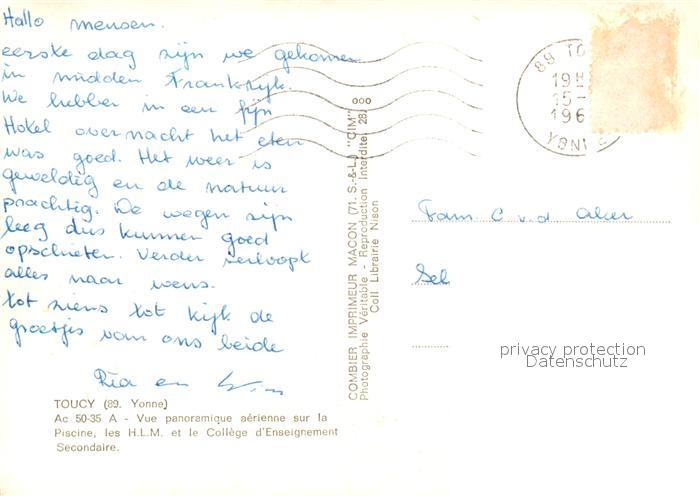 Hallo mensen.
eerste dag zijn we gekomen
in midden Frankrijk.
We hebben in een fijn
Hotel overnacht het eten
was goed. Het weer is
geweldig en de natuur
prachtig. De wegen zijn
leeg dus kunnen goed
opschieten. Verder verloopt
alles naar wens.
tot ziens tot kijk de
groetjes van ons beide
Ria en Wim
TOUCY (89. Yonne)
Ac 50-35 A - Vue panoramique aérienne sur la
Piscine, les H.L.M. et le Collège d'Enseignement
Secondaire.
COMBIER IMPRIMEUR MACON (71. S.-&-L.) "CIM"
Photographie Véritable - Reproduction Interdite 28 ooo
Coll Librairie Nison
89 TO
19H
15-
196
YONNE
Fam C v.d Aker
privacy protection
Datenschutz